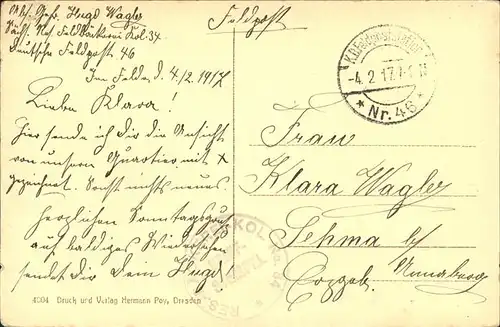 Abs. Gefr. Hugo Wagler
Sächs. Res. Feldbäckerei Kol. 34
Deutsche Feldpost 46
Im Felde, d. 4./2. 1917
Liebe Klara!
Hier sende ich dir die Ansicht
von unsern Quartier mit x
gezeichnet. Sonst nichts neues.
Herzlichen Sonntagsgruß
auf baldiges Wiedersehen
sendet dir dein Hugo!
4004 Druck und Verlag Hermann Poy, Dresden
Feldpost
-4. 2. 17.
* Nr. 46 *
Frau
Klara Wagler
Sehma b/
Annaberg
Erzgeb.